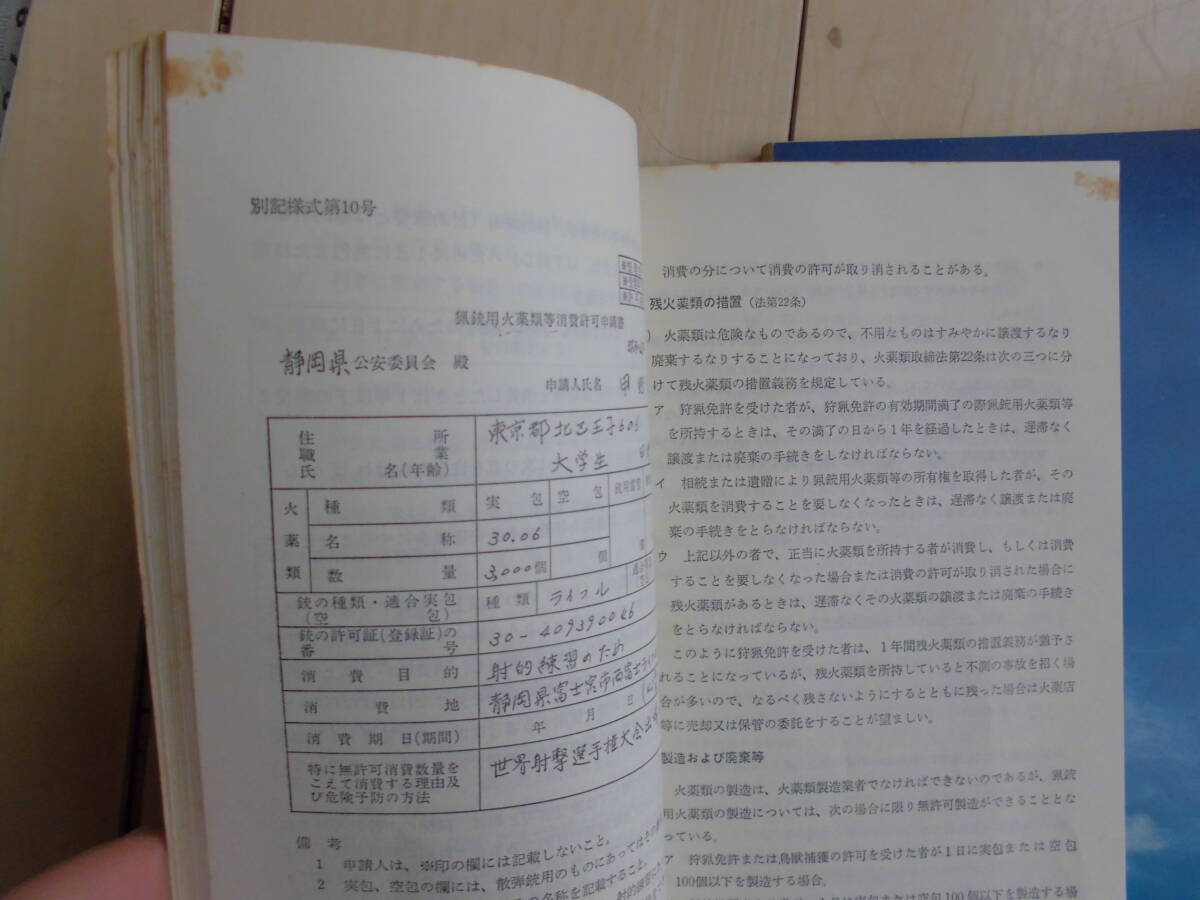 別記様式第10号
猟銃用火薬類等消費許可申請書
静岡県公安委員会 殿
申請人氏名 甲
住所
職業
氏名(年齢)
東京都北区王子606
大学生
火薬類
種類 実包 空包
名称 30.06
数量 3,000個 個
銃の種類・適合実包
(空包)
種類 ライフル
銃の許可証(登録証)の
番号
30-409390046
消費目的 射的練習のため
消費地 静岡県富士宮市西富士ライ
消費期日(期間) 年 月 日
特に無許可消費数量を
こえて消費する理由及
び危険予防の方法
世界射撃選手権大会出
備考
1 申請人は、※印の欄には記載しないこと。
2 実包、空包の欄には、散弾銃用のものにあってはその
の名称を記載すること。
消費の分について消費の許可が取り消されることがある。
残火薬類の措置(法第22条)
火薬類は危険なものであるので、不用なものはすみやかに譲渡するなり
廃棄するなりすることになっており、火薬類取締法第22条は次の三つに分
けて残火薬類の措置義務を規定している。
ア 狩猟免許を受けた者が、狩猟免許の有効期間満了の際猟銃用火薬類等
を所持するときは、その満了の日から1年を経過したときは、遅滞なく
譲渡または廃棄の手続きをしなければならない。
イ 相続または遺贈により猟銃用火薬類等の所有権を取得した者が、その
火薬類を消費することを要しなくなったときは、遅滞なく譲渡または廃
棄の手続きをとらなければならない。
ウ 上記以外の者で、正当に火薬類を所持する者が消費し、もしくは消費
することを要しなくなった場合または消費の許可が取り消された場合に
残火薬類があるときは、遅滞なくその火薬類の譲渡または廃棄の手続き
をとらなければならない。
このように狩猟免許を受けた者は、1年間残火薬類の措置義務が猶予さ
れることになっているが、残火薬類を所持していると不測の事故を招く場
合が多いので、なるべく残さないようにするとともに残った場合は火薬店
等に売却又は保管の委託をすることが望ましい。
製造および廃棄等
火薬類の製造は、火薬類製造業者でなければできないのであるが、猟銃
用火薬類の製造については、次の場合に限り無許可製造ができることとな
っている。
ア 狩猟免許または鳥獣捕獲の許可を受けた者が1日に実包または空包
100個以下を製造する場合。